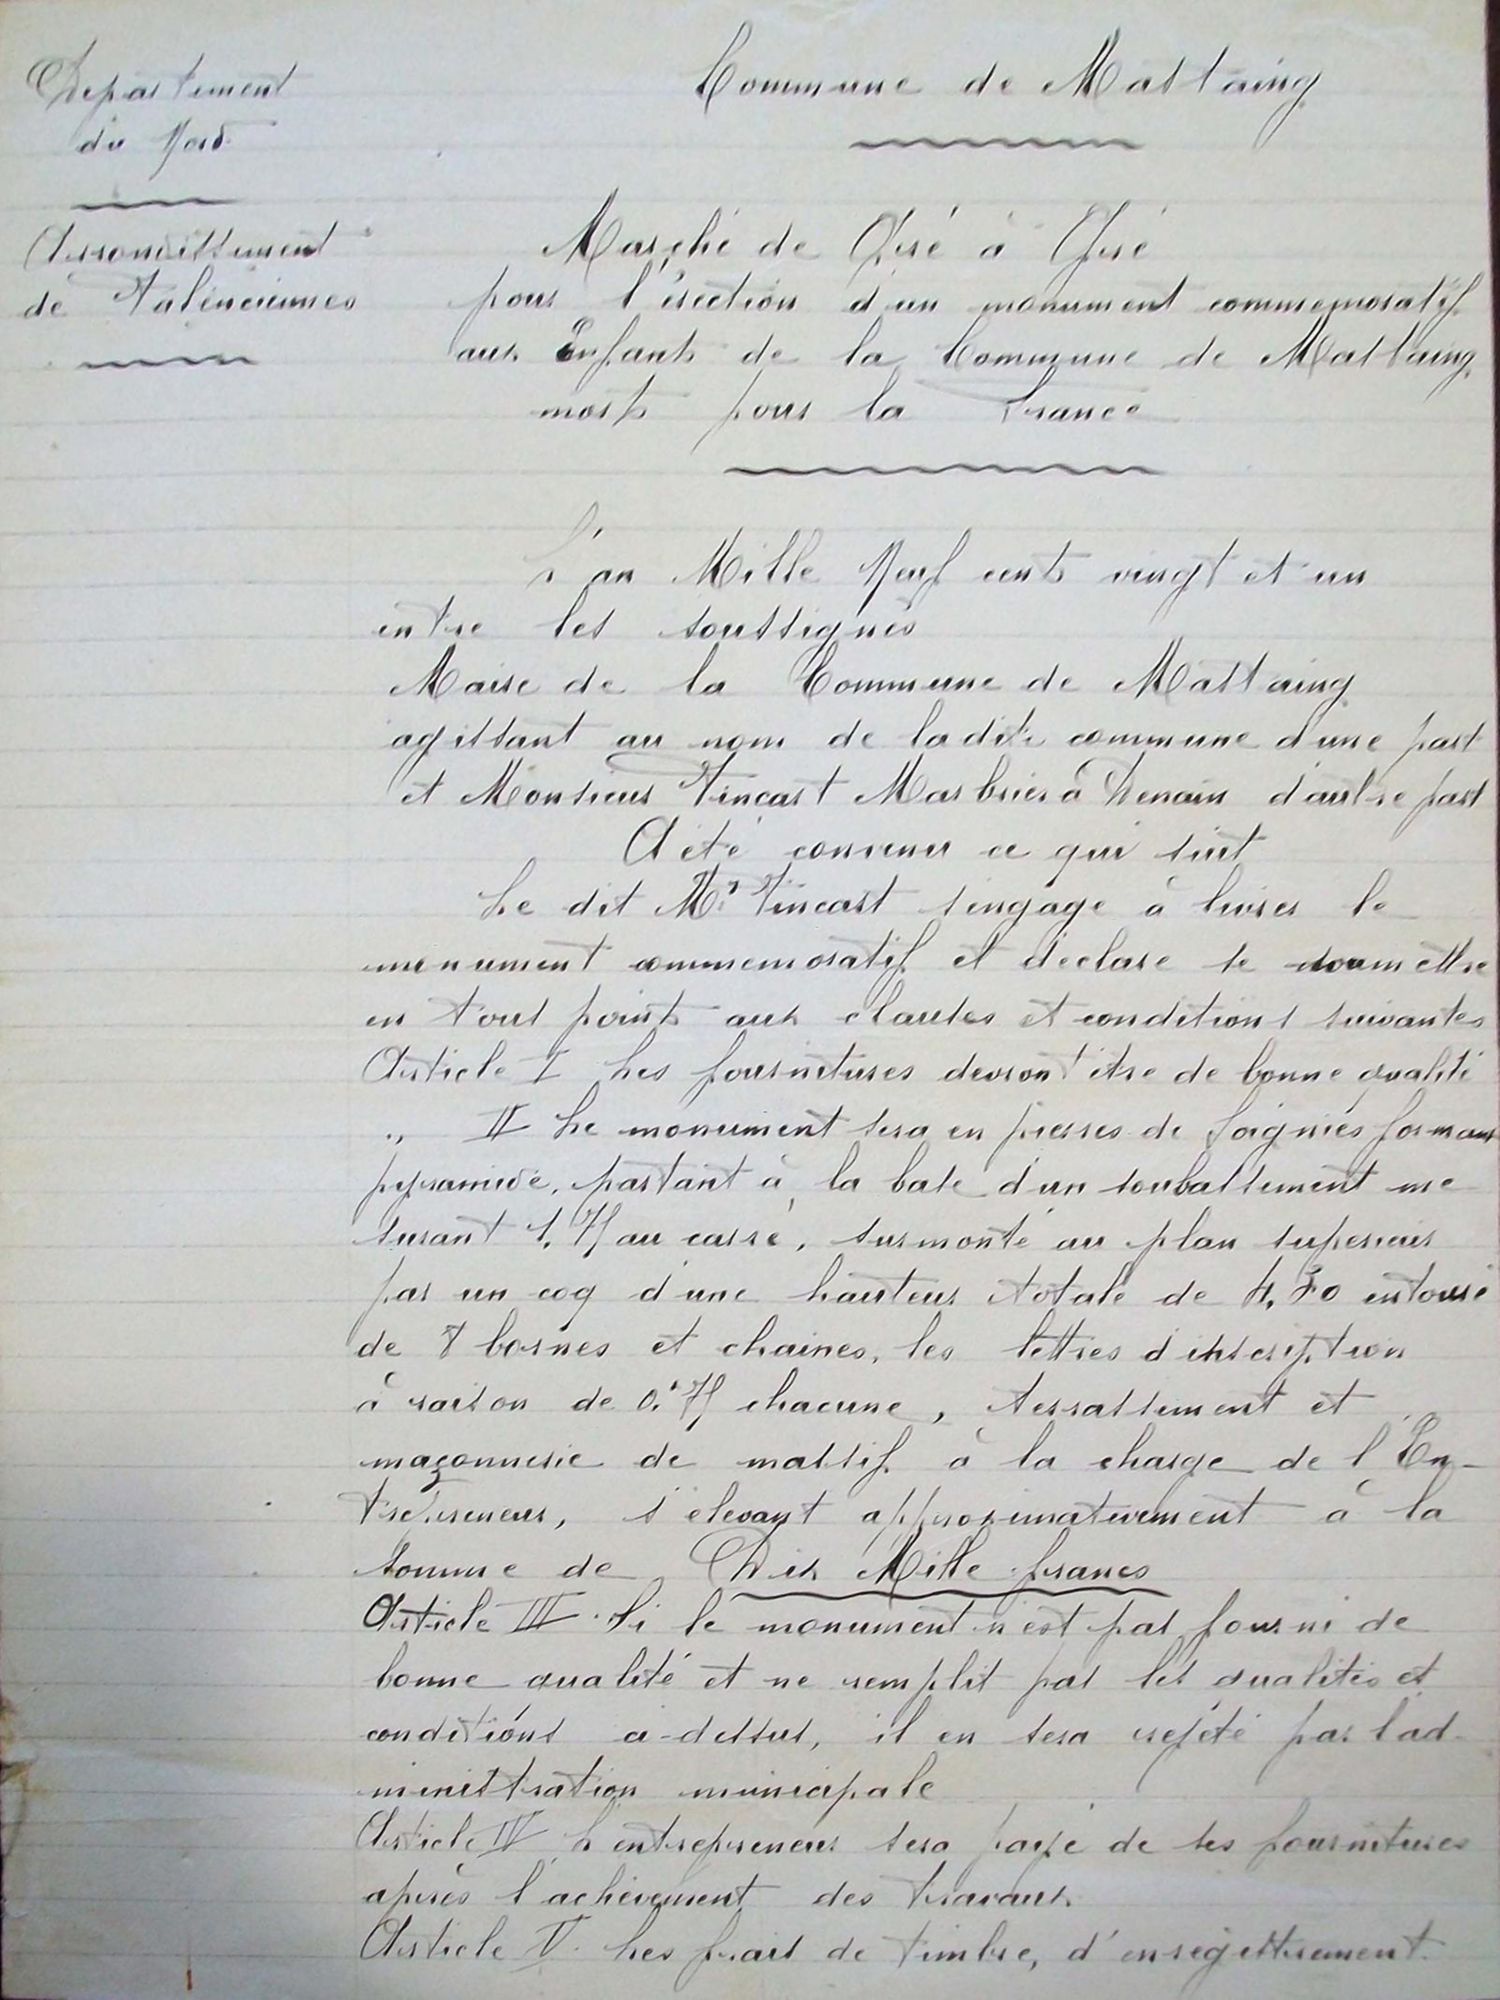 Département
du Nord
Arrondissement
de Valenciennes
Commune de Mastaing
Marché de Gré à Gré
pour l'érection d'un monument commemoratif
aux Enfants de la Commune de Mastaing
morts pour la France
L'an Mille Neuf cents vingt et un
entre les soussignés
Maire de la Commune de Mastaing
agissant au nom de ladite commune d'une part
et Monsieur Vincart Marbrier à Denain d'autre part
A été convenu ce qui suit
Le dit Mr Vincart s'engage à livrer le
monument commemoratif et déclare se soumettre
en tout points aux clauses et conditions suivantes
Article I Les fournitures devront être de bonne qualité
„ II Le monument sera en pierres de Soignies formant
pyramide, partant à la base d'un soubassement me
surant 1,75 au carré, surmonté au plan superieur
par un coq d'une hauteur totale de 4,30 entouré
de 8 bornes et chaines, les lettres d'inscription
à raison de 0,75 chacune, terrassement et
maçonnerie de massif à la charge de l'En-
trepreneur, s'élevant approximativement à la
somme de Dix Mille francs
Article III Si le monument n'est pas fourni de
bonne qualité et ne remplit pas les qualités et
conditions ci-dessus, il en sera rejeté par l'ad-
ministration municipale
Article IV L'entrepreneur sera payé de ses fournitures
après l'achèvement des travaux
Article V. Les frais de timbre, d'enregistrement